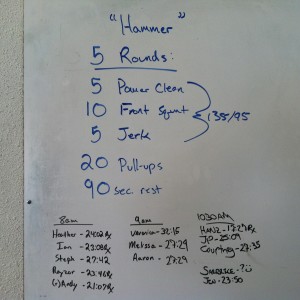 "Hammer"
5 Rounds:
5 Power Clean
10 Front Squat
5 Jerk
135/95
20 Pull-ups
90 sec. rest
8am
Heather - 24:02 Rx
Ian - 23:08 Rx
Steph - 27:42
Rx
Andy - 21:07 Rx
9am
Veronica - 32:15
Melissa - 27:29
Aaron - 27:29
10:30AM
JP - 25:09
Courtney - 27:35
Jen - 23:50